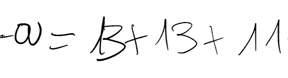 -a) = 13 + 13 + 11